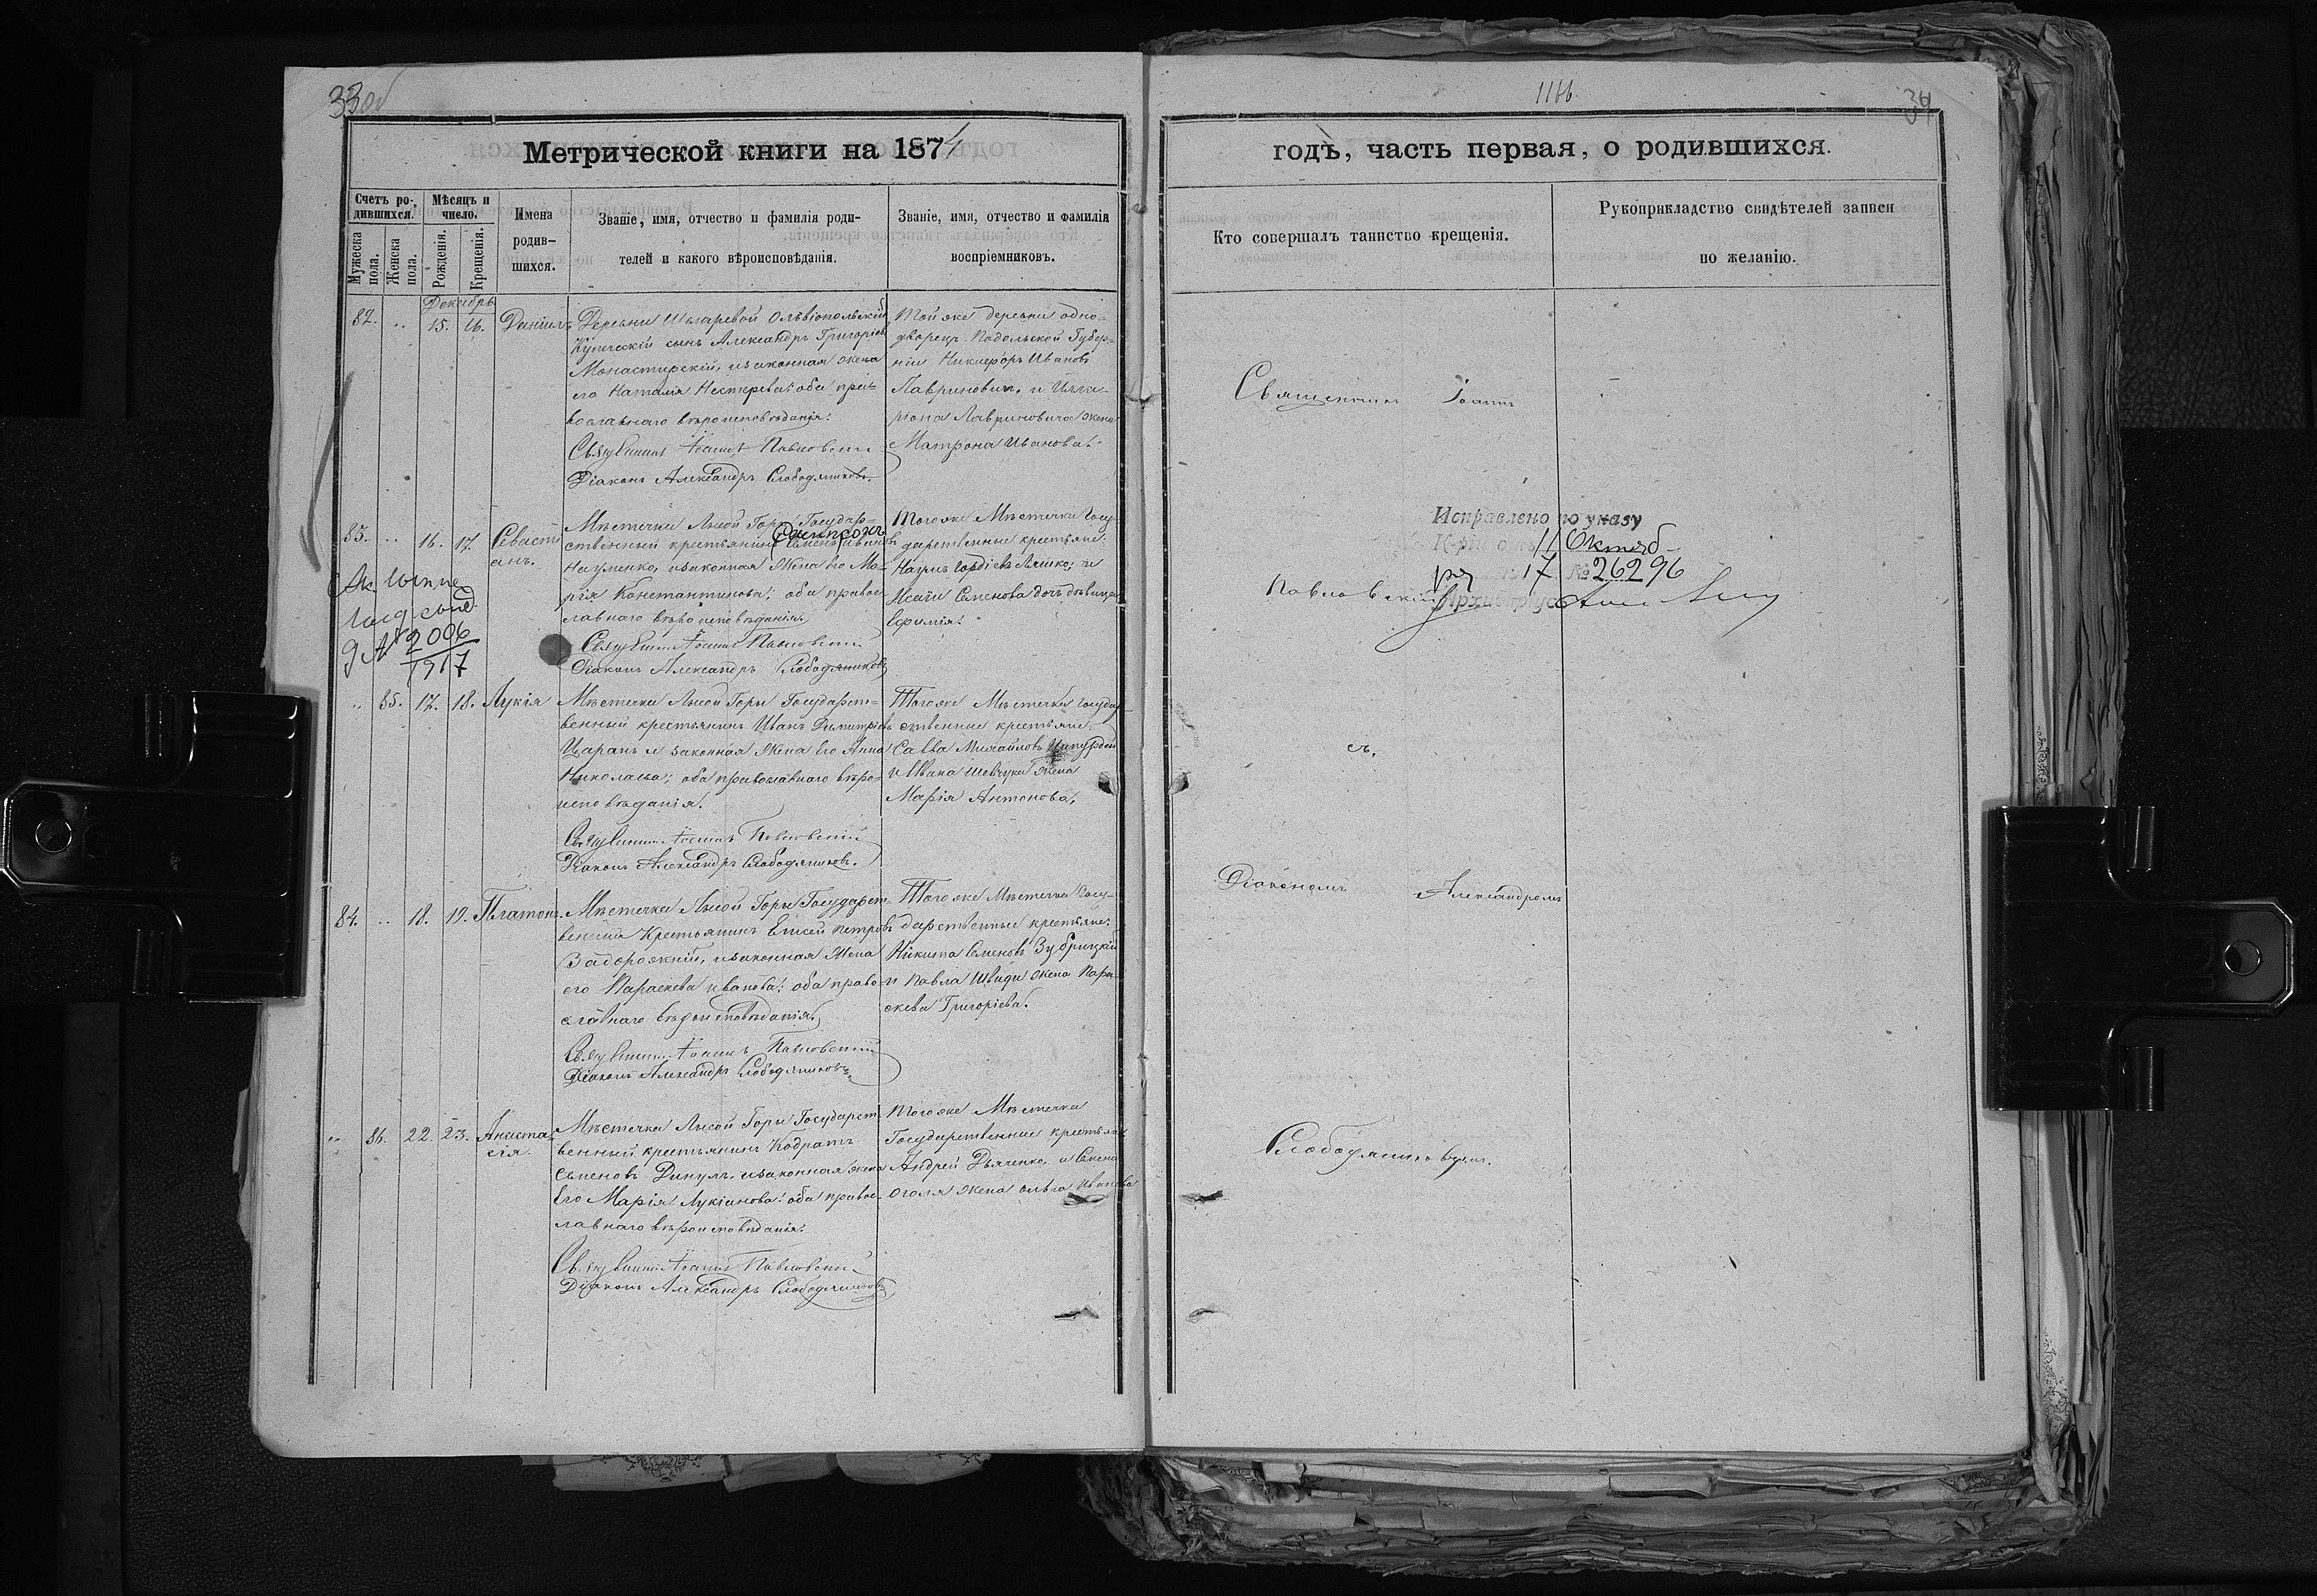 33об
Метрической книги на 1874
Счетъ ро-
дившихся.
Мѣсяцъ и
число.
Мужеска
пола.
Женска
пола.
Рожденія.
Крещенія.
Имена
родив-
шихся.
Званіе, имя, отчество и фамилія роди-
телей и какого вѣроисповѣданія.
Званіе, имя, отчество и фамилія
воспріемниковъ.
Декабрь
82. „ 15. 16. Даніилъ
Деревни Шкаревой Ольвіопольскій
Купеческій сынъ Александръ Григоріевъ
Монастирскій, изаконная жена
его Наталія Нестерева: оба пра-
вославнаго вѣроисповѣданія.
Священникъ Іоаннъ Павловскій
Діаконъ Александръ Слободяниковъ.
Той же деревни одно-
дворецъ Подольской Губер-
ніи Никифоръ Ивановъ
Лавриновичъ, и Илла-
ріона Лавриновича жена
Матрона Иванова.
83. „ 16. 17. Севасті
анъ.
Мѣстечка Лысой Горы Государ-
Сампсонъ
ственный крестьянинъ Семенъ Ивановъ
Науменко, изаконная жена его Ма-
рія Константинова: оба правос-
лавнаго вѣроисповѣданія.
Священникъ Іоаннъ Павловскій
Діаконъ Александръ Слободяниковъ
Того же Мѣстечка Госу-
дарственные крестьяне:
Наумъ Гордіевъ и
Исаіи Семенова дочь дѣвица
Ефимія.
2006
1917
„ 85. 17. 18. Лукія
Мѣстечка Лысой Горы Государст-
венный крестьянинъ Иванъ Димитріевъ
Царанъ и законная жена Его Анна
Николаева: оба православнаго вѣро-
исповѣданія.
Священникъ Іоаннъ Павловскій
Діаконъ Александръ Слободяниковъ.
Того же Мѣстечка Государ
ственные крестьяне:
Савва Михайловъ
и Ивана Шевчука жена
Марія Антонова.
84. „ 18. 19. Платонъ.
Мѣстечка Лысой Горы Государст-
венный Крестьянинъ Елисей Петровъ
Задорожній, изаконная жена
его Параскева Иванова: оба право-
славнаго вѣроисповѣданія.
Священникъ Іоаннъ Павловскій
Діаконъ Александръ Слободяниковъ
Того же Мѣстечка Госу-
дарственные крестьяне:
Никита Семеновъ Зубрицкій
и Павла Швиди жена Пара-
скева Григоріева.
„ 86. 22. 23. Анаста-
сія.
Мѣстечка Лысой Горы Государст-
венный крестьянинъ Кодратъ
Семеновъ Динулъ, изаконная жена
Его Марія Лукіанова: оба правос-
лавнаго вѣроисповѣданія.
Священникъ Іоаннъ Павловскій
Діаконъ Александръ Слободяниковъ
Того же Мѣстечка
Государственные крестьяне
Андрей Дьяченко, и Семена
Оголя жена Ольга Иванова
1166
34
годъ, часть первая, о родившихся.
Кто совершалъ таинство крещенія.
Рукоприкладство свидѣтелей записи
по желанію.
Священникъ Іоаннъ
Исправлено по указу
11 Октяб-
ря 17 № 26296
Павловскій
съ
Діакономъ Александромъ
Слободяниковымъ.